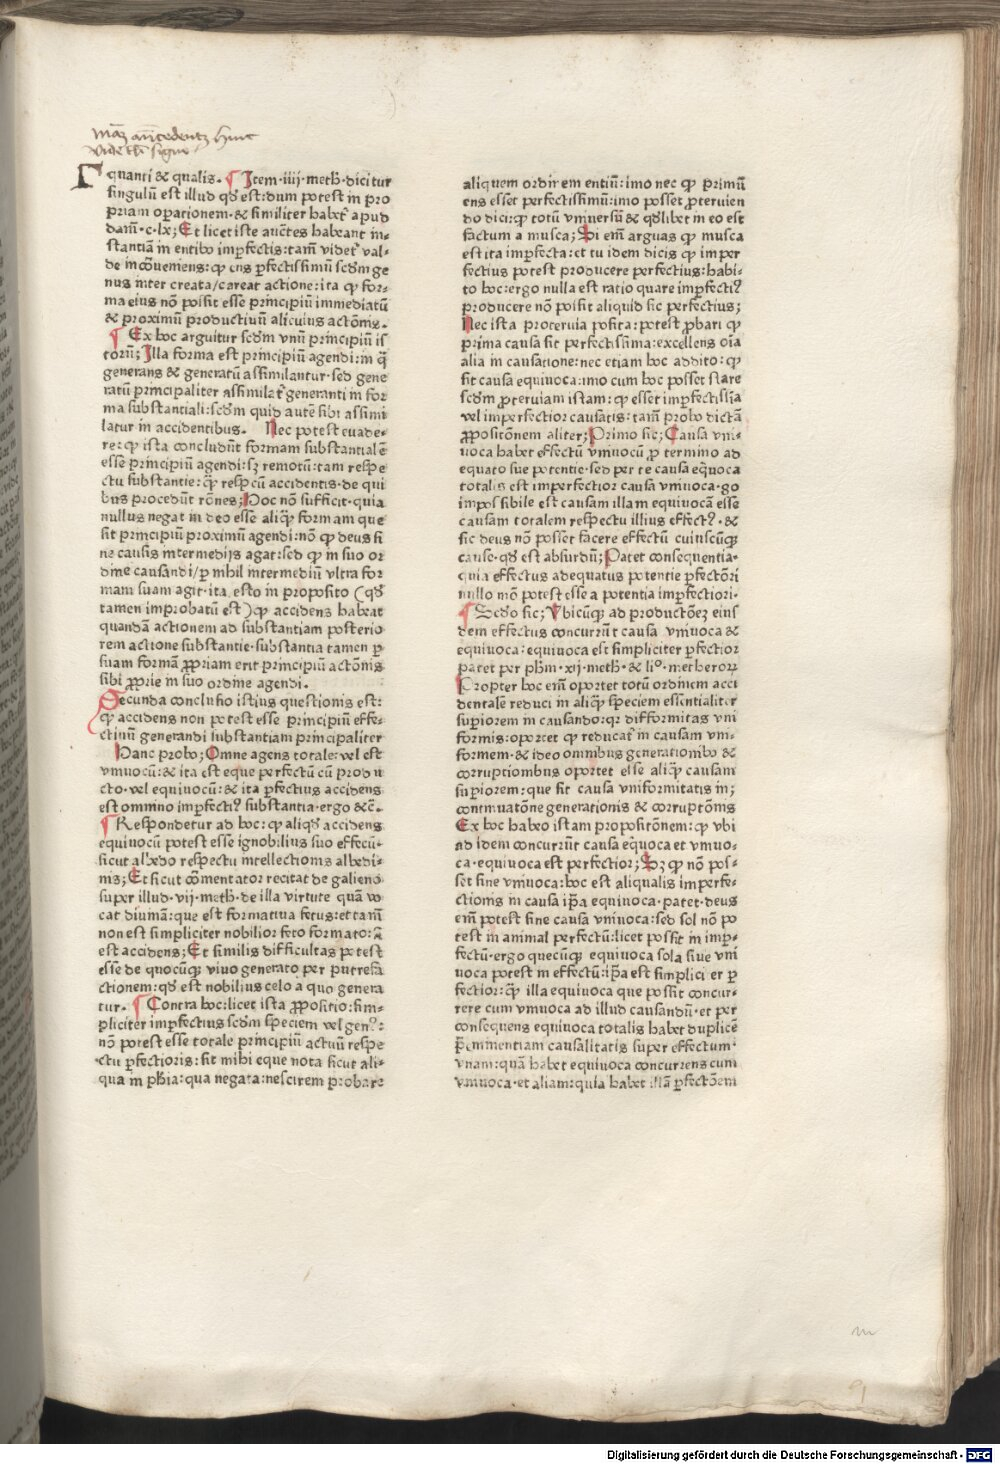 quanti & qualis. ¶ Item·iiij·meth̄·dicitur
singulū est illud qđ est: dum potest in pro
priam oꝑationem·& similiter habet᷑ apud
dam̄·c·lx; Et licet iste auct͞es habeant in-
stantiā in entibꝰ imꝑfectis: tam̄ videt᷑ val-
de incōueniens: ꝙ ens ꝑfectissimū scd̄m ge
nus inter creata/careat actione: ita ꝙ for-
ma eius nō possit esse principiū immediatū
& proximū productiuū alicuius act͞ois.
¶ Ex hoc arguitur scd̄m vnū principiū is
torū; Illa forma est principiū agendi: in q̄
generans & generatū assimilantur·sed gene
ratū principaliter assimilat᷑ generanti in for
ma substantiali: scd̄m quid autē sibi assimi
latur in accidentibus. Nec potest euade-
re: ꝙ ista concludūt formam substantialē
esse principiū agendi: sꝫ remotū: tam respe
ctu substantie: q̄ꝫ respcū accidentis·de qui
bus procedūt rōnes; Hoc nō sufficit·quia
nullus negat in deo esse aliq̄ꝫ formam que
sit principiū proximū agendi: nō ꝙ deus si
ne causis intermedijs agat: sed ꝙ in suo or
dine causandi/ꝑ nihil intermediū vltra for
mam suam agit·ita esto in proposito (qđ
tamen improbatū est) ꝙ accidens habeat
quandā actionem ad substantiam posterio
rem actione substantie·substantia tamen ꝑ
suam formā ꝓpriam erit principiū act͞ois
sibi ꝓprie in suo ordine agendi.
Secunda conclusio istius questionis est:
ꝙ accidens non potest esse principiū effe-
ctiuū generandi substantiam principaliter
Hanc probo; Omne agens totale: vel est
vniuocū: & ita est eque perfectū cū produ
cto·vel equiuocū: & ita ꝑfectius accidens
est omnino imꝑfectiꝰ substantia·ergo &c̄.
¶ Respondetur ad hoc: ꝙ aliqđ accidens
equiuocū potest esse ignobilius suo effectu·
sicut albedo respectu intellectionis albedi-
nis; Et sicut cōmentator recitat de galieno
super illud·vij·meth̄·de illa virtute quā vo
cat diuinā: que est formatiua fetus: et tam̄
non est simpliciter nobilior feto formato:
est accidens; Et similis difficultas potest
esse de quocūqꝫ viuo generato per putrefa
ctionem: qđ est nobilius celo a quo genera
tur. ¶ Contra hoc: licet ista ꝓpositio: sim-
pliciter imꝑfectius scd̄m speciem vel genꝰ:
nō potest esse totale principiū actuū respe
ctu ꝑfectioris: sit mihi eque nota sicut ali-
qua in ph̄ia: qua negata: nescirem probare
aliquem ordinem entiū: imo nec ꝙ primū
ens esset perfectissimū: imo posset ꝓteruien
do dici: ꝙ totū vniuersū & qđlibet in eo est
factum a musca; Si em̄ arguas ꝙ musca
est ita imperfecta: et tu idem dicis ꝙ imper
fectius potest producere perfectius: habi-
to hoc: ergo nulla est ratio quare imperfectiꝰ
producere nō possit aliquid sic perfectius;
Nec ista proteruia posita: potest ꝓbari ꝙ
prima causa sit perfectissima: excellens oīa
alia in causatione: nec etiam hoc addito: ꝙ
sit causa equiuoca: imo cum hoc posset stare
scd̄m ꝓteruiam istam: ꝙ esset imperfectissīa
vel imperfectior causatis: tam̄ probo dictā
ꝓposit͞onem aliter; Primo sic; Causa vni-
uoca habet effectū vniuocū ꝓ termino ad
equato sue potentie·sed per te causa eq̄uoca
totalis est imperfectior causa vniuoca·go
impossibile est causam illam equiuocā esse
causam totalem respectu illius effectꝰ·&
sic deus nō posset facere effectū cuiuscūqꝫ
cause·qđ est absurdū; Patet consequentia·
quia effectus adequatus potentie ꝑfect͞ori
nullo mō potest esse a potentia imperfectiori·
¶ Scd̄o sic; Vbicūqꝫ ad product͞oeꝫ eius
dem effectus concurrūt causa vniuoca &
equiuoca: equiuoca est simpliciter ꝑfectior
patet per ph̄m·xij·meth̄·& li°·metheroꝝ
Propter hoc em̄ oportet totū ordinem acci
dentale reduci in aliq̄ꝫ speciem essentialiter
superiorem in causando: qꝛ difformitas vni
formis: oportet ꝙ reducat᷑ in causam vni-
formem·& ideo omnibus generationibꝰ &
corruptionibus oportet esse aliq̄ꝫ causam
superiorem: que sit causa vniformitatis in;
continuat͞one generationis & corrupt͞ois
Ex hoc habeo istam proposit͞onem: ꝙ vbi
ad idem concurrūt causa equoca et vniuo-
ca·equiuoca est perfectior; Sꝫ ꝙ nō pos-
set sine vniuoca: hoc est aliqualis imperfe-
ctionis in causa ip̄a equiuoca·patet·deus
em̄ potest sine causa vniuoca: sed sol nō po
test in animal perfectū: licet possit in imper-
fectū·ergo quecūqꝫ equiuoca sola siue vni
uoca potest in effectū: ip̄a est simpliciter ꝑ
fectior: q̄ꝫ illa equiuoca que possit concur-
rere cum vniuoca ad illud causandū·et per
consequens equiuoca totalis habet duplicē
p̄eminentiam causalitatis super effectum·
vnam: quā habet equiuoca concurrens cum
vniuoca·et aliam: quia habet illā ꝑfect͞oem
Digitalisierung gefördert durch die Deutsche Forschungsgemeinschaft - DFG